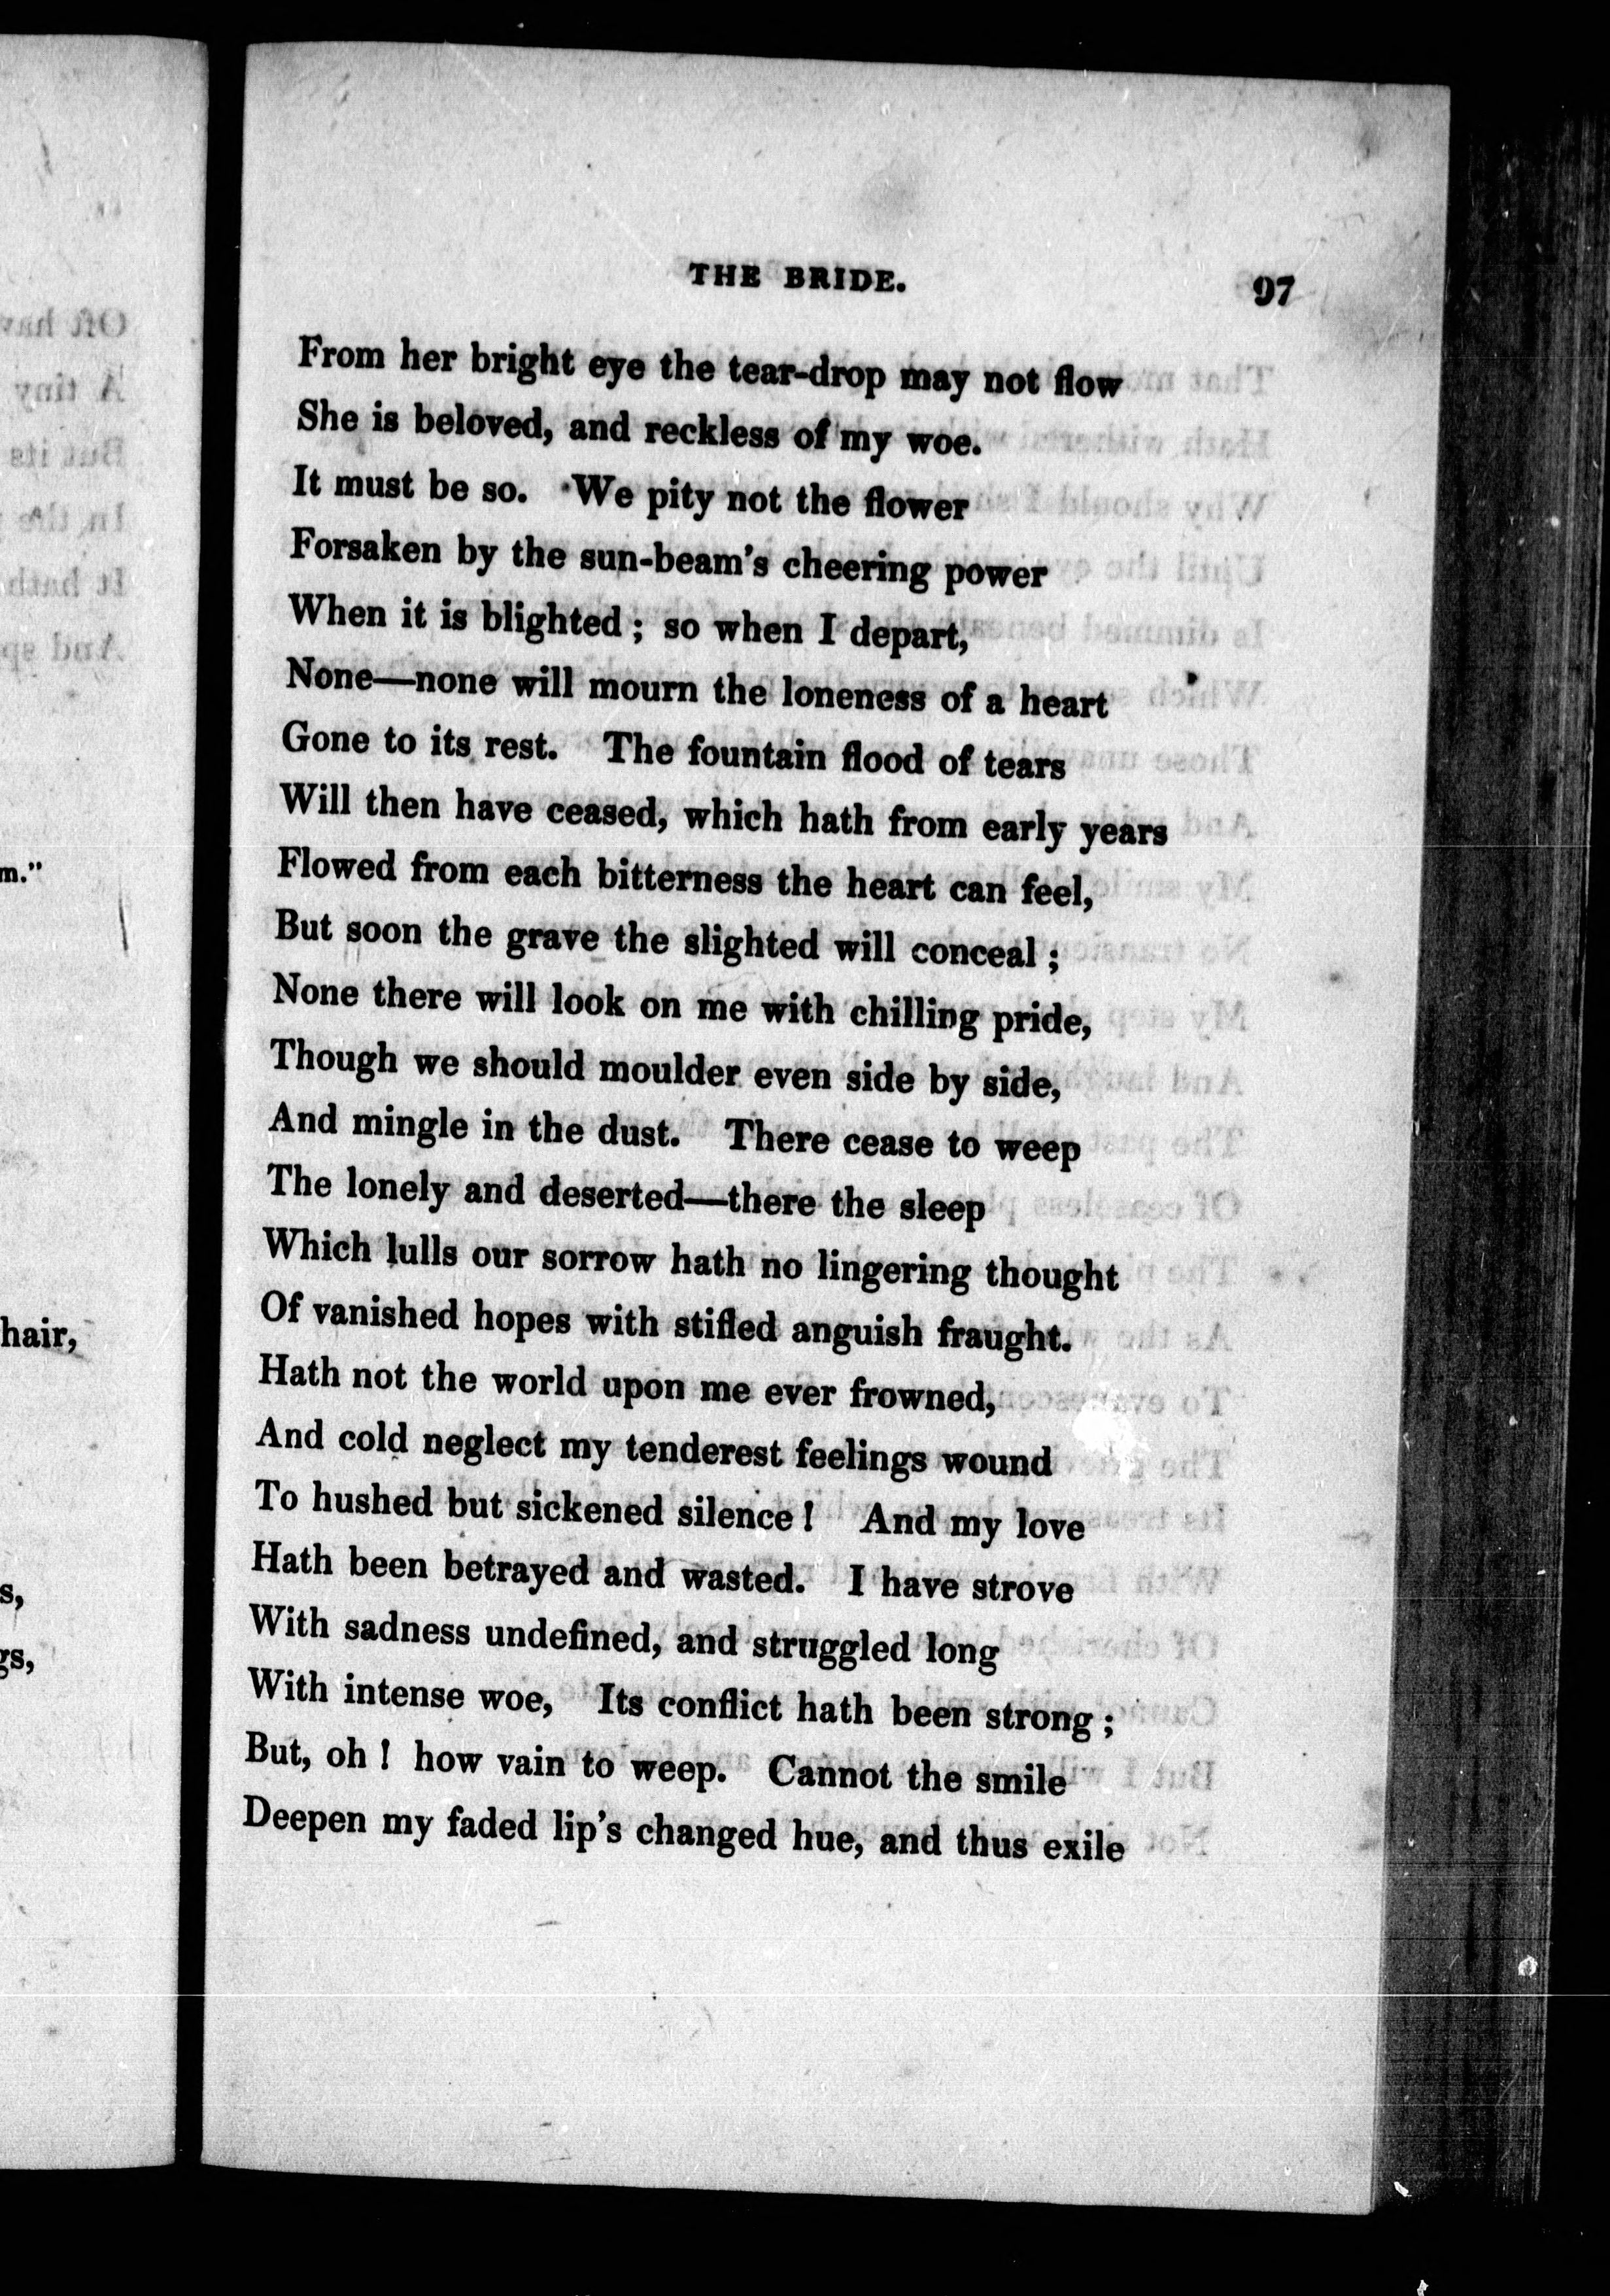 THE BRIDE. 97
From her bright eye the tear-drop may not flow
She is beloved, and reckless of my woe.
It must be so. We pity not the flower
Forsaken by the sun-beam's cheering power
When it is blighted; so when I depart,
None—none will mourn the loneness of a heart
Gone to its rest. The fountain flood of tears
Will then have ceased, which hath from early years
Flowed from each bitterness the heart can feel,
But soon the grave the slighted will conceal;
None there will look on me with chilling pride,
Though we should moulder even side by side,
And mingle in the dust. There cease to weep
The lonely and deserted—there the sleep
Which lulls our sorrow hath no lingering thought
Of vanished hopes with stifled anguish fraught.
Hath not the world upon me ever frowned,
And cold neglect my tenderest feelings wound
To hushed but sickened silence! And my love
Hath been betrayed and wasted. I have strove
With sadness undefined, and struggled long
With intense woe, Its conflict hath been strong;
But, oh! how vain to weep. Cannot the smile
Deepen my faded lip's changed hue, and thus exile
m."
hair,
s,
gs,